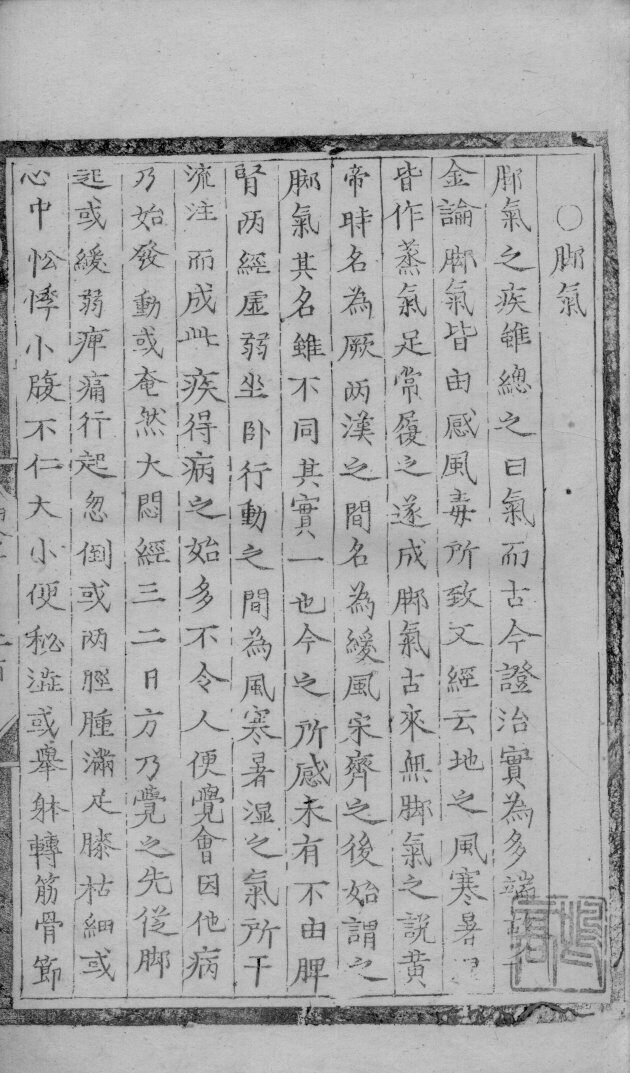 ○脚氣
脚氣之疾雖總之曰氣而古今證治實為多端
金論脚氣皆由感風毒所致文經云地之風寒暑
皆作蒸氣足常履之遂成脚氣古來無脚氣之說黃
帝時名為厥两漢之間名為緩風宋齊之後始謂之
脚氣其名雖不同其實一也今之所感未有不由脾
腎两經虛弱坐卧行動之間為風寒暑湿之氣所干
流注而成此疾得病之始多不令人便覺會因他病
乃始發動或奄然大悶經三二日方乃覺之先從脚
起或緩弱痺痛行起忽倒或两脛腫滿足膝枯細或
心中忪悸小腹不仁大小便秘澁或舉躰轉筋骨節